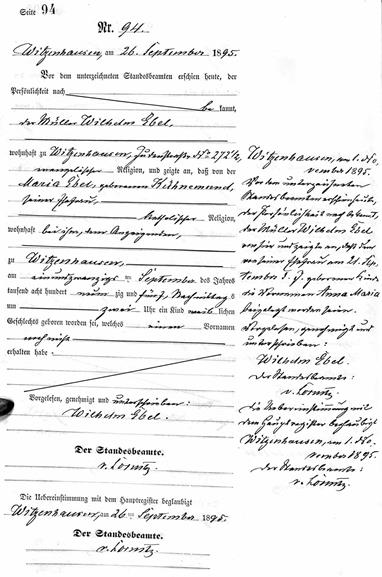 Seite 94
Nr. 94.
Witzenhausen, am 26. September 1895.
Vor dem unterzeichneten Standesbeamten erschien heute, der
Persönlichkeit nach
be kannt,
der Müller Wilhelm Ebel,
wohnhaft zu Witzenhausen, Judenstraße N° 272½,
evangelischer Religion, und zeigte an, daß von der
Maria Ebel, geborenen Kühnemund,
seiner Ehefrau,
katholischer Religion,
wohnhaft bei ihm, dem Anzeigenden,
zu Witzenhausen,
am einundzwanzigs ten September des Jahres
tausend acht hundert neun zig und fünf, Nachmittags
um zwei Uhr ein Kind weib lichen
Geschlechts geboren worden sei, welches einen Vornamen
noch nicht
erhalten habe
Vorgelesen, genehmigt und unterschrieben:
Wilhelm Ebel.
Der Standesbeamte.
Die Uebereinstimmung mit dem Hauptregister beglaubigt
Witzenhausen, am 26ten September 1895.
Der Standesbeamte.
Witzenhausen, am 1. No-
vember 1895.
Vor dem unterzeichneten
Standesbeamten erschien heute,
der Persönlichkeit nach bekannt,
der Müller Wilhelm Ebel
von hier und zeigte an, daß dem
von seiner Ehefrau am 21. Sep-
tember d. J. geborenen Kinde
die Vornamen Anna Maria
beigelegt worden seien.
Vorgelesen, genehmigt und
unterschrieben:
Wilhelm Ebel.
Der Standesbeamte:
Die Uebereinstimmung mit
dem Hauptregister beglaubigt
Witzenhausen, am 1. No-
vember 1895.
Der Standesbeamte: